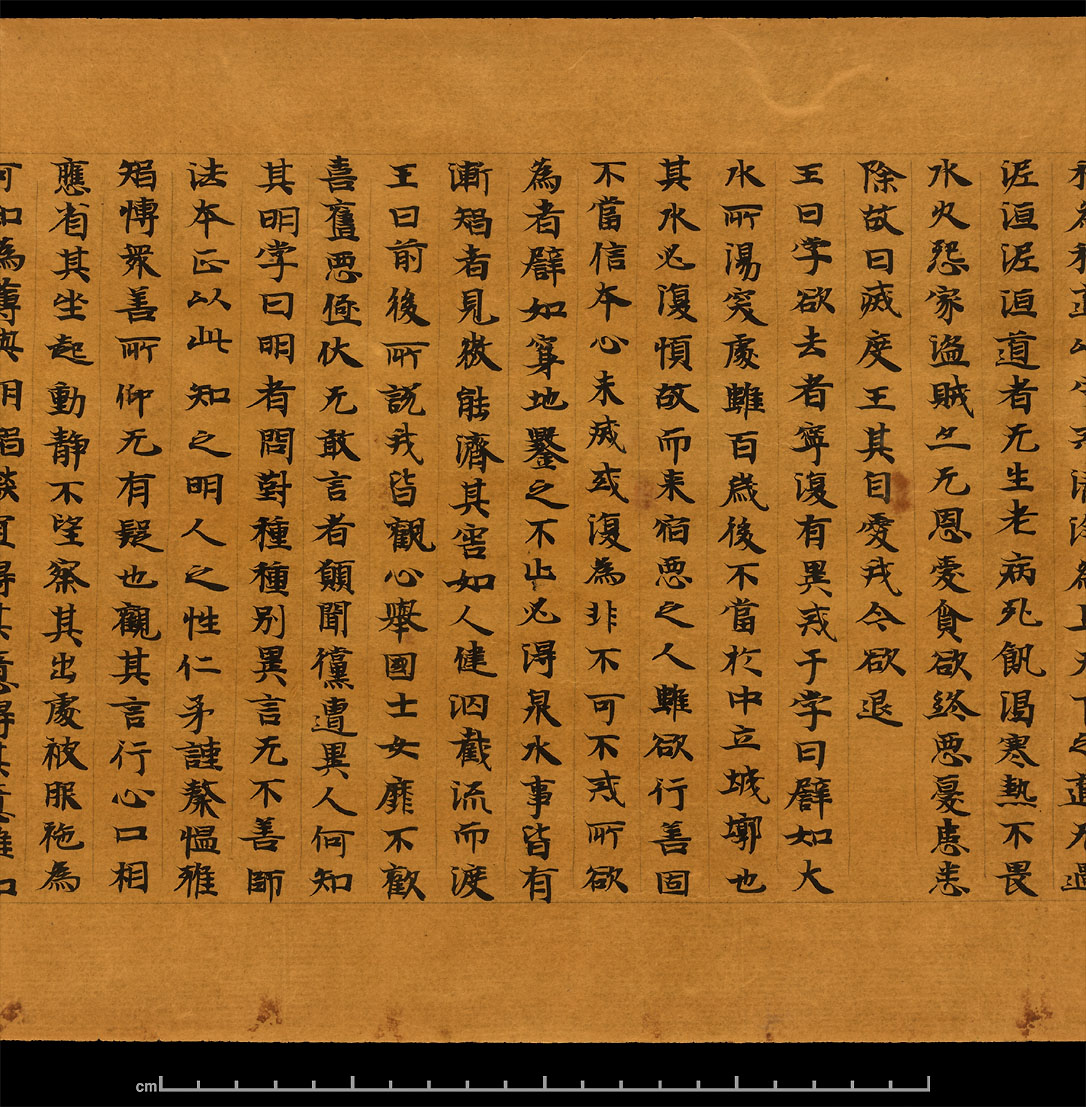 天下之道无過
泥洹泥洹道者无生老病死飢渴寒熱不畏
水火怨家盜賊亦无恩愛貪欲終惡憂患悉
除故曰滅度王其自愛我今欲退
王曰孛欲去者寧復有異戒于孛曰譬如大
水所湯突處雖百歲後不當於中立城墎也
其水必復順故而来宿惡之人雖欲行善固
不當信本心未滅或復為非不可不戒所欲
為者譬如穿地鑿之不止必得泉水事皆有
漸智者見微能濟其害如人健泅截流而渡
王曰前後所說我皆觀心舉國士女靡不歡
喜舊惡伏无敢言者願聞儻遭異人何知
其明孛曰明者問對種種別異言无不善師
法本正以此知之明人之性仁柔謹慤愠雅
智博衆善所仰无有疑也觀其言行心口相
應省其坐起動靜不望察其出處被服施為
可知為薄與明智談宜得其意得其意難如